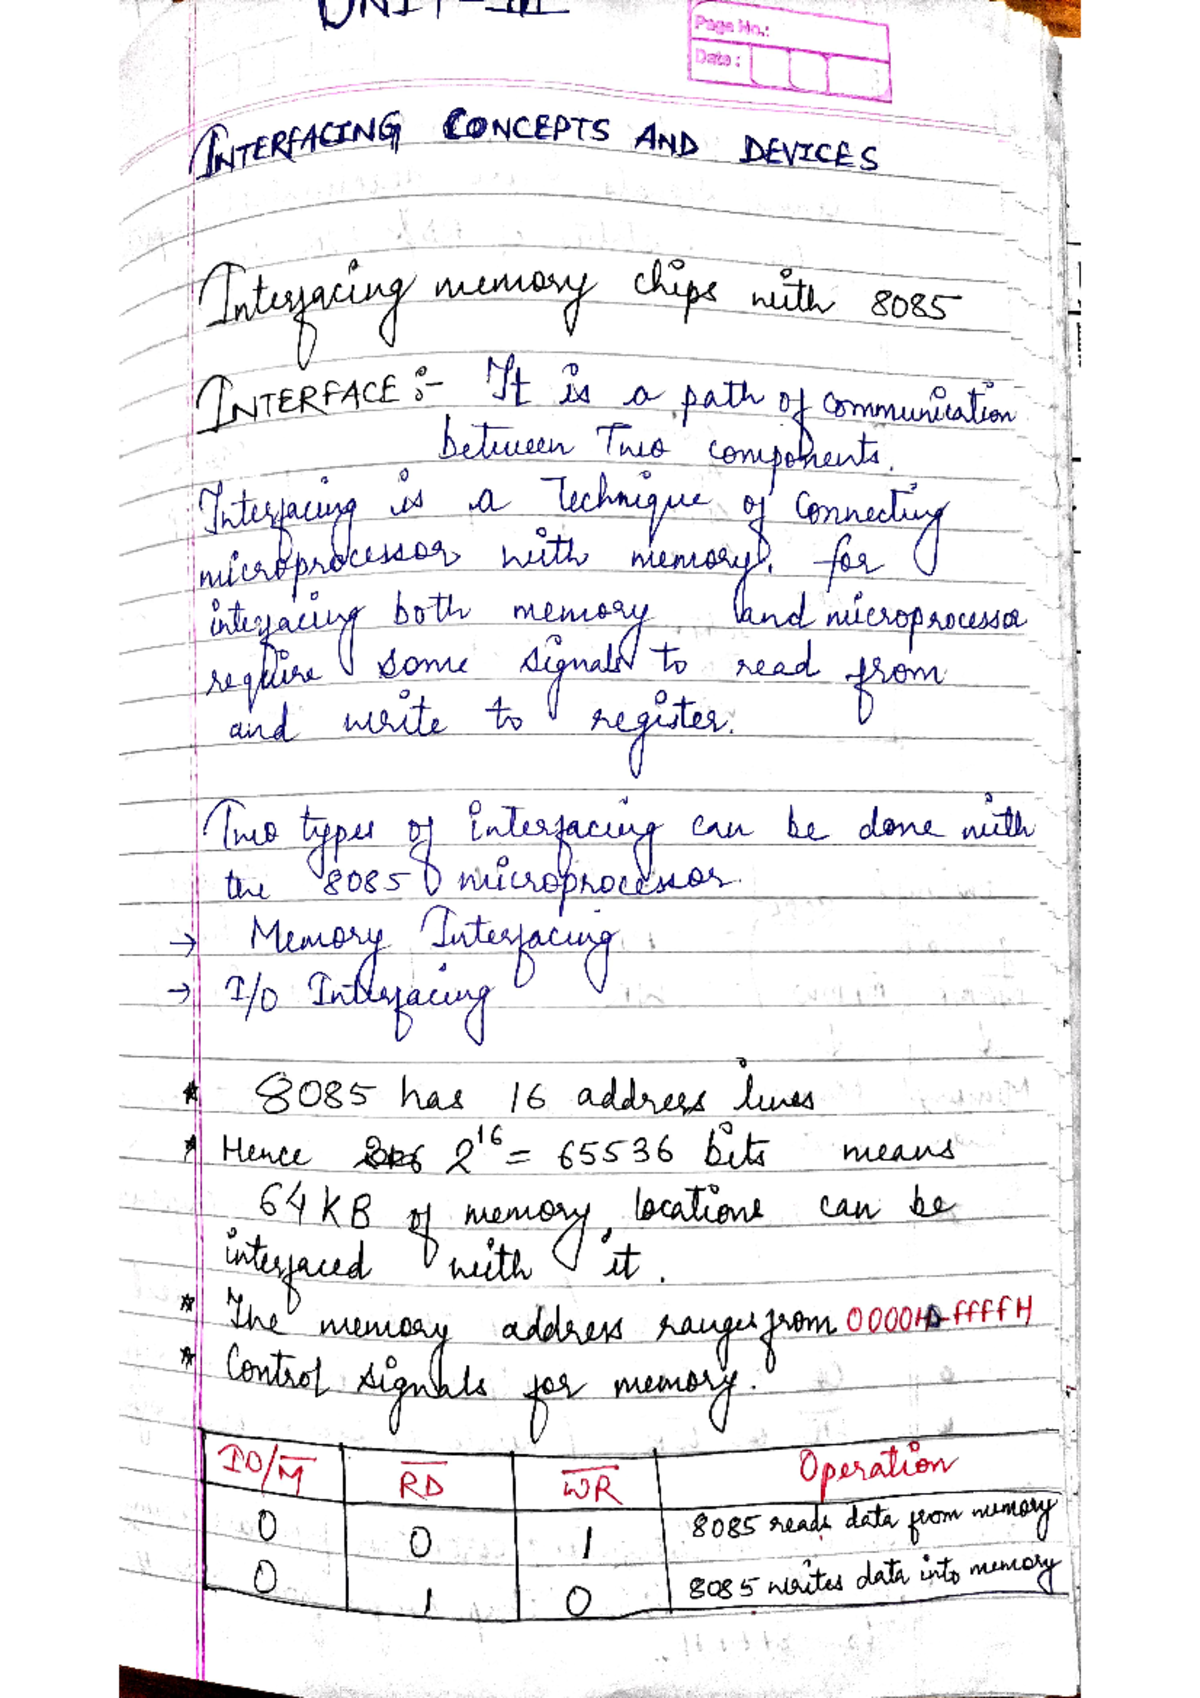 UNIT-III
Page No.:
Date:
INTERFACING CONCEPTS AND DEVICES
Interfacing memory chips with 8085
INTERFACE :- It is a path of communication
between Two components.
Interfacing is a Technique of Connecting
microprocessor with memory. for
interfacing both memory and microprocessor
require some signals to read from
and write to register.
Two types of interfacing can be done with
the 8085 microprocessor.
→ Memory Interfacing
→ I/O Interfacing
* 8085 has 16 address lines
* Hence 2^16 = 65536 bits means
64KB of memory locations can be
interfaced with it.
* The memory address ranges from 0000H-FFFFH
* Control signals for memory.
IO/M̅ R̅D̅ W̅R̅ Operation
0 0 1 8085 reads data from memory
0 1 0 8085 writes data into memory